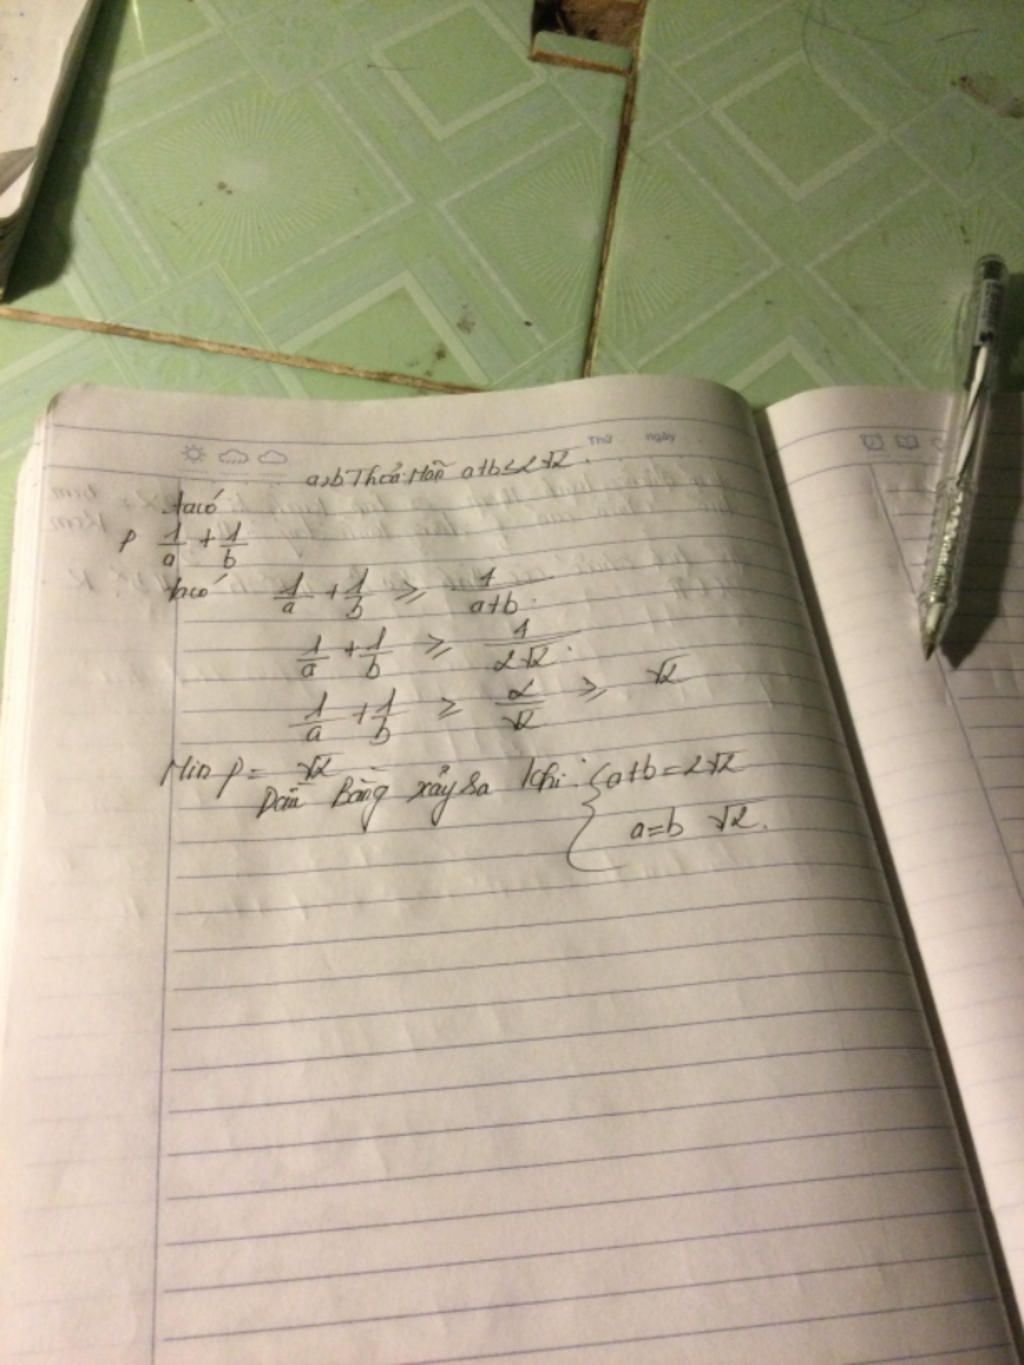 Thứ ngày
a,b Thỏa Mãn a+b ≤ 2√2.
ta có
P 1/a + 1/b
ta có 1/a + 1/b ≥ 4/a+b.
1/a + 1/b ≥ 4/2√2.
1/a + 1/b ≥ 2/√2 ≥ √2
Min P = √2
Dấu Bằng xảy sa khi: { a+b = 2√2
a=b √2.